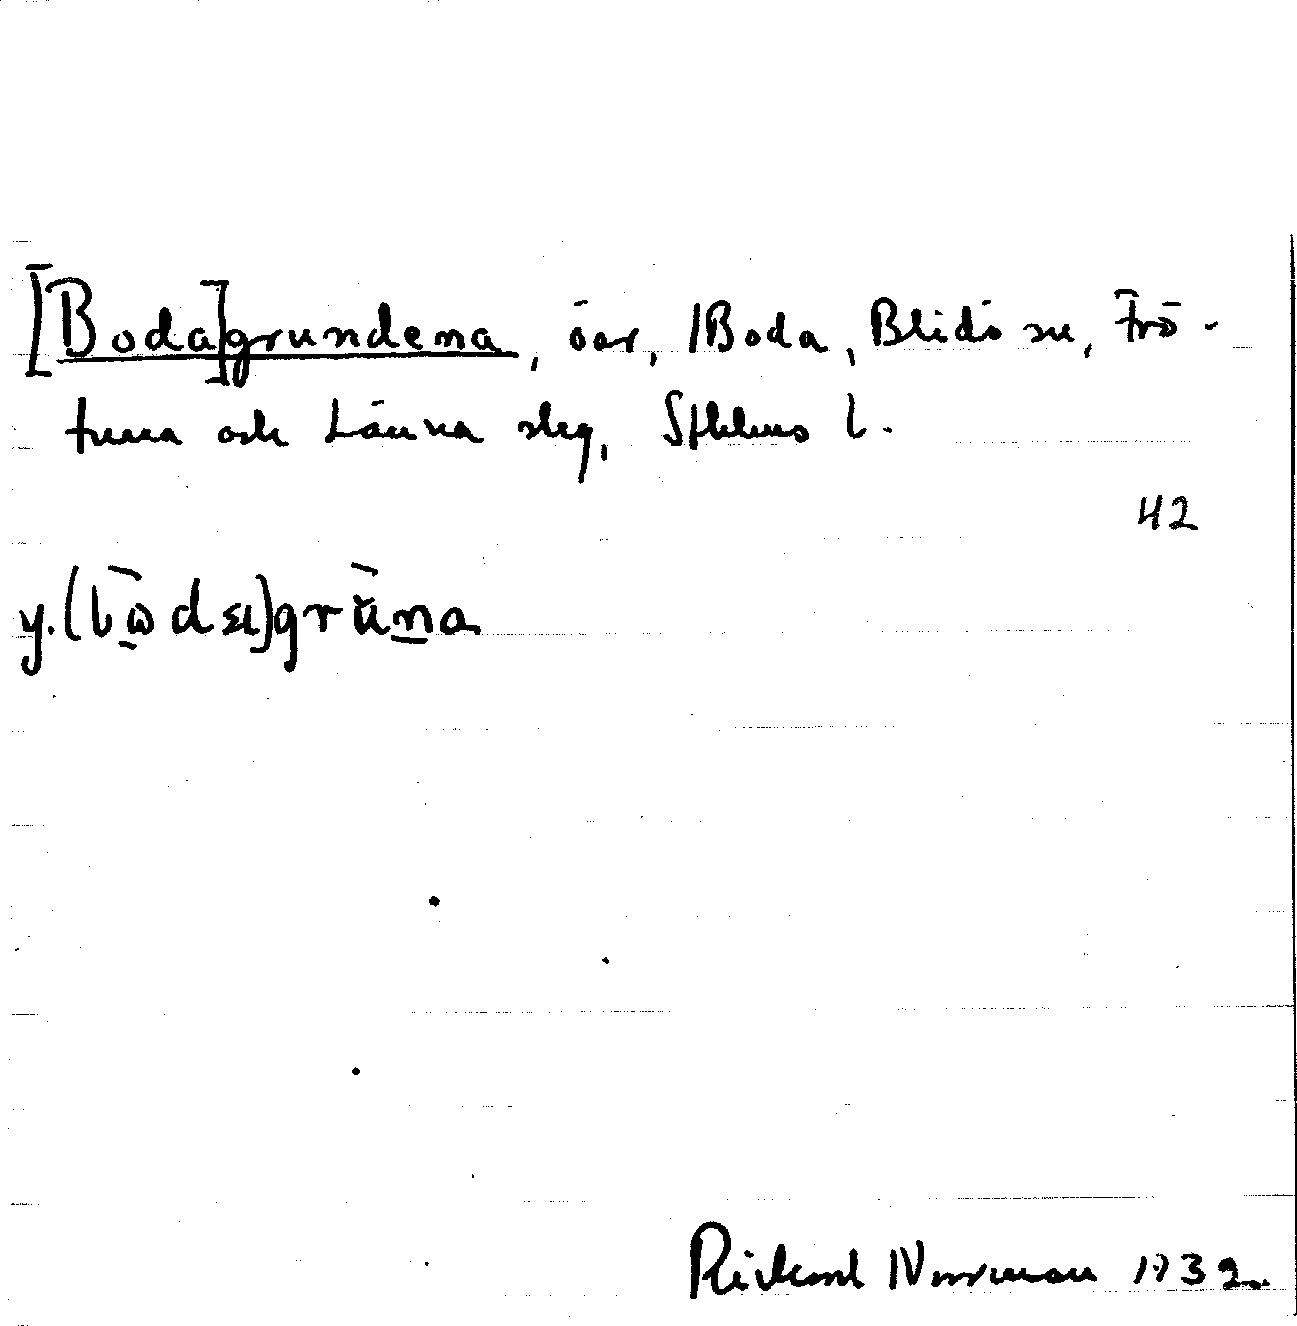 [Boda]grundena, öar, Boda, Blidö sn, Frö-
tuna och Länna skg, Sthlms l.
42
y. (bω̄da)grŭna
Rickard Norrman 1932